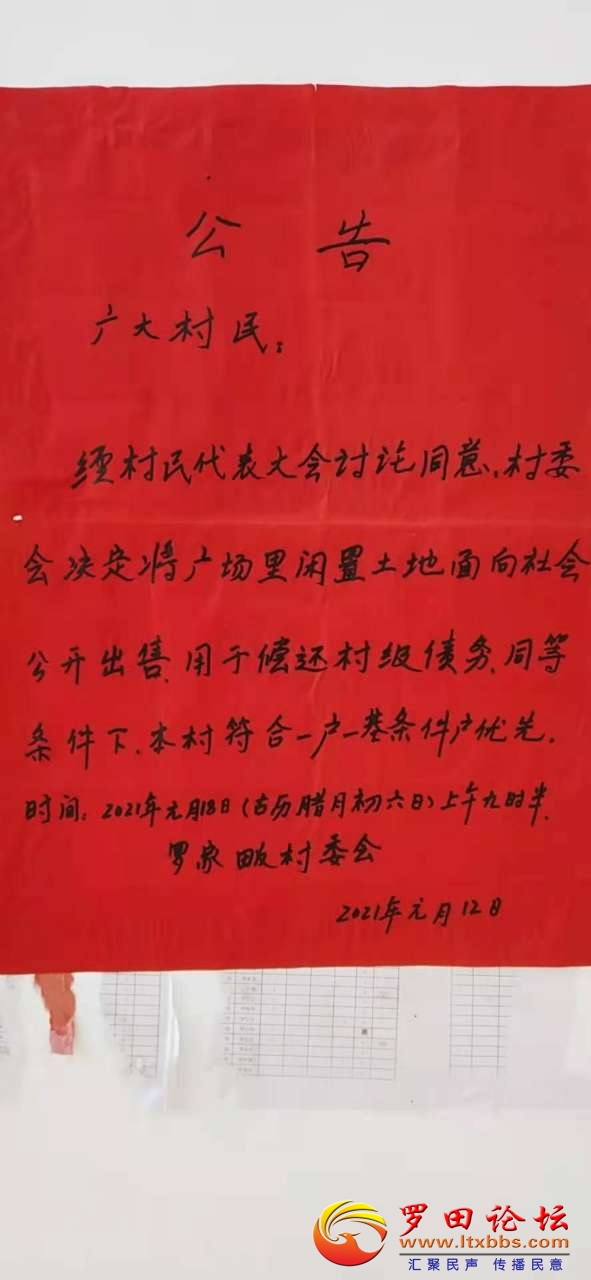 公告
广大村民：
经村民代表大会讨论同意，村委
会决定将广场里闲置土地面向社会
公开出售、用于偿还村级债务、同等
条件下、本村符合一户一基条件户优先。
时间：2021年元月18日（古历腊月初六日）上午九时半、
罗家畈村委会
2021年元月12日
罗田论坛
www.ltxbbs.com
汇聚民声 传播民意